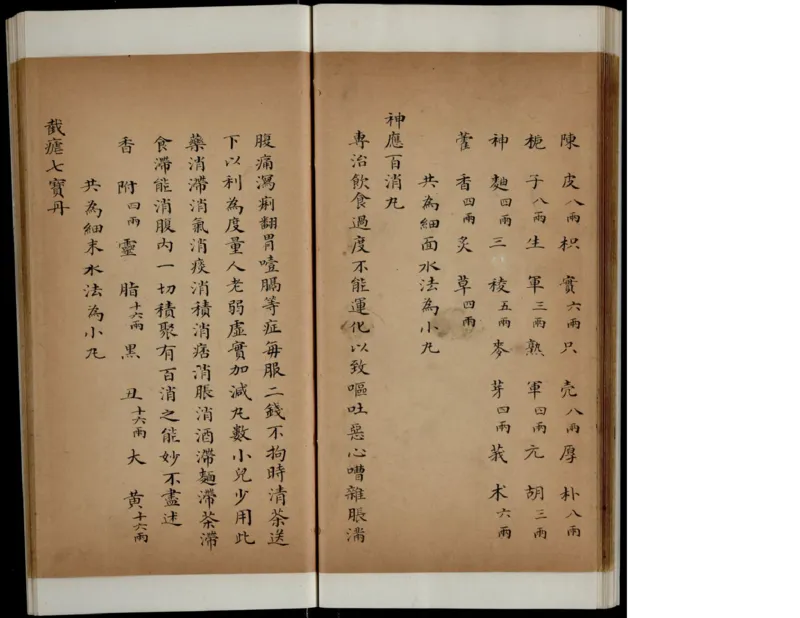 陳皮八兩枳實六兩只壳八兩厚朴八兩
梔子八兩生軍三兩熟軍四兩元胡三兩
神麯四兩三稜五兩麥芽四兩莪术六兩
藿香四兩炙草四兩
共為細面水法為小丸
神應百消丸
專治飲食過度不能運化以致嘔吐惡心嘈雜脹滿
腹痛瀉痢翻胃噎膈等症每服二錢不拘時清茶送
下以利為度量人老弱虛實加減丸數小兒少用此
藥消滯消氣消痰消積消痞消脹消酒滯麵滯茶滯
食滯能消腹內一切積聚有百消之能妙不盡述
香附四兩靈脂十六兩黑丑十六兩大黃十六兩
共為細末水法為小丸
截瘧七寶丹